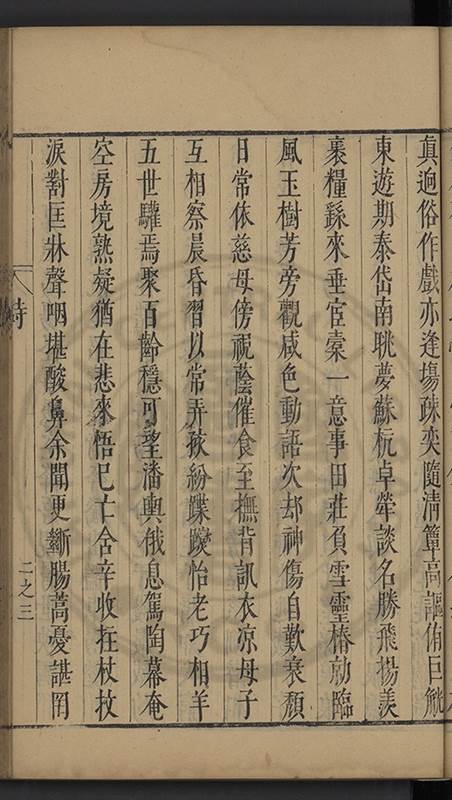 真逈俗作戲亦逢塲疎奕隨清簟高謳侑巨觥
東遊期泰岱南眺夢蘇杭卓犖談名勝飛揚羨
裹糧繇來垂宦槖一意事田莊負雪靈椿勍臨
風玉樹芳旁觀咸色動語次却神傷自歎衰頹
日常依慈母傍視蔭催食至撫背訊衣凉母子
互相察晨昏習以常弄孩紛蹀躞怡老巧相羊
五世驩焉聚百齡穩可望潘輿俄息駕陶幕奄
空房境熟疑猶在悲來悟巳亡含辛收拄杖抆
淚對匡牀聲咽堪酸鼻余聞更斷腸蒿憂諶罔
詩
二之三